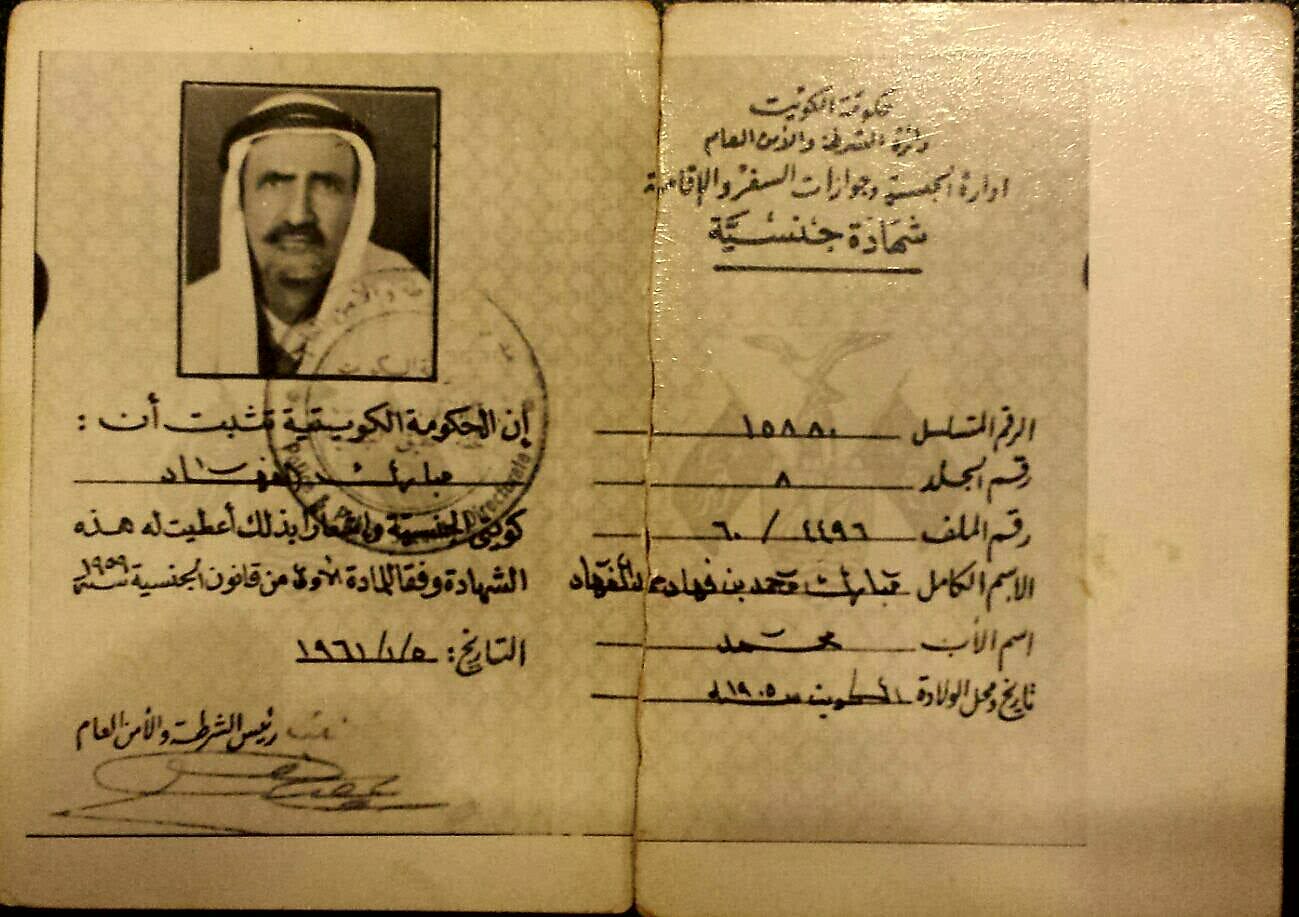 حكومة الكويت
دائرة الشرطة والأمن العام
ادارة الجنسية وجوازات السفر والإقامة
شهادة جنسية
الرقم المتسلسل ١٥٨٨٠
رقم الجلد ٨
رقم الملف ٤٤٩٦ / ٦٠
الاسم الكامل مبارك محمد بن فهاد
اسم الأب محمد
تاريخ ومحل الولادة الكويت سنة ١٩٠٥
إن الحكومة الكويتية تثبت أن :
مبارك الفهاد
كويتي الجنسية واشعارا بذلك أعطيت له هذه
الشهادة وفقا للمادة الأولى من قانون الجنسية سنة ١٩٥٩
التاريخ : ١٩٦١/١/٥
رئيس الشرطة والأمن العام
Directorate